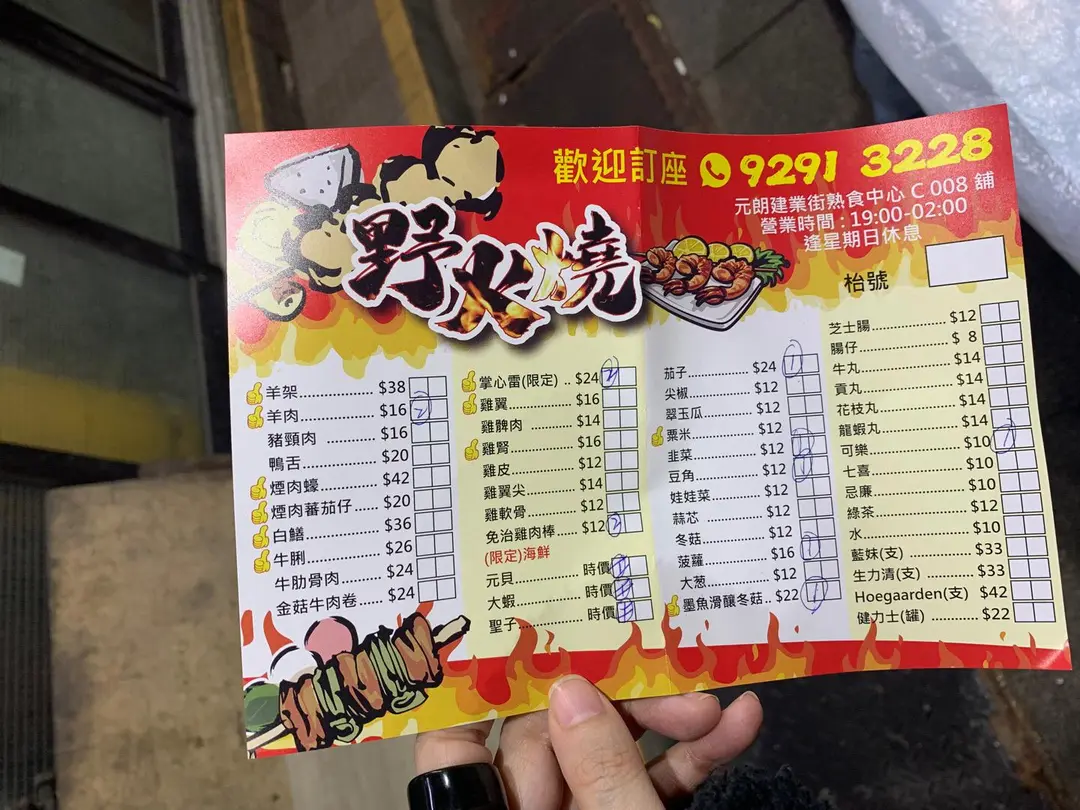 歡迎訂座 9291 3228
元朗建業街熟食中心 C 008 舖
營業時間 : 19:00-02:00
逢星期日休息
野火燒
枱號
羊架 $38
羊肉 $16 2
豬頸肉 $16
鴨舌 $20
煙肉蠔 $42
煙肉蕃茄仔 $20
白鱔 $36
牛脷 $26
牛肋骨肉 $24
金菇牛肉卷 $24
掌心雷(限定) $24
雞翼 $16
雞髀肉 $14
雞腎 $16
雞皮 $12
雞翼尖 $14
雞軟骨 $12
免治雞肉棒 $12 2
(限定)海鮮
元貝 時價
大蝦 時價
聖子 時價
茄子 $24 1
尖椒 $12
翠玉瓜 $12
粟米 $12
韭菜 $12 1
豆角 $12 1
娃娃菜 $12
蒜芯 $12
冬菇 $12
菠蘿 $16 1
大葱 $12
墨魚滑釀冬菇 $22 1
芝士腸 $12
腸仔 $ 8
牛丸 $14
貢丸 $14
花枝丸 $14
龍蝦丸 $14
可樂 $10
七喜 $10
忌廉 $10
綠茶 $12
水 $10
藍妹(支) $33
生力清(支) $33
Hoegaarden(支) $42
健力士(罐) $22